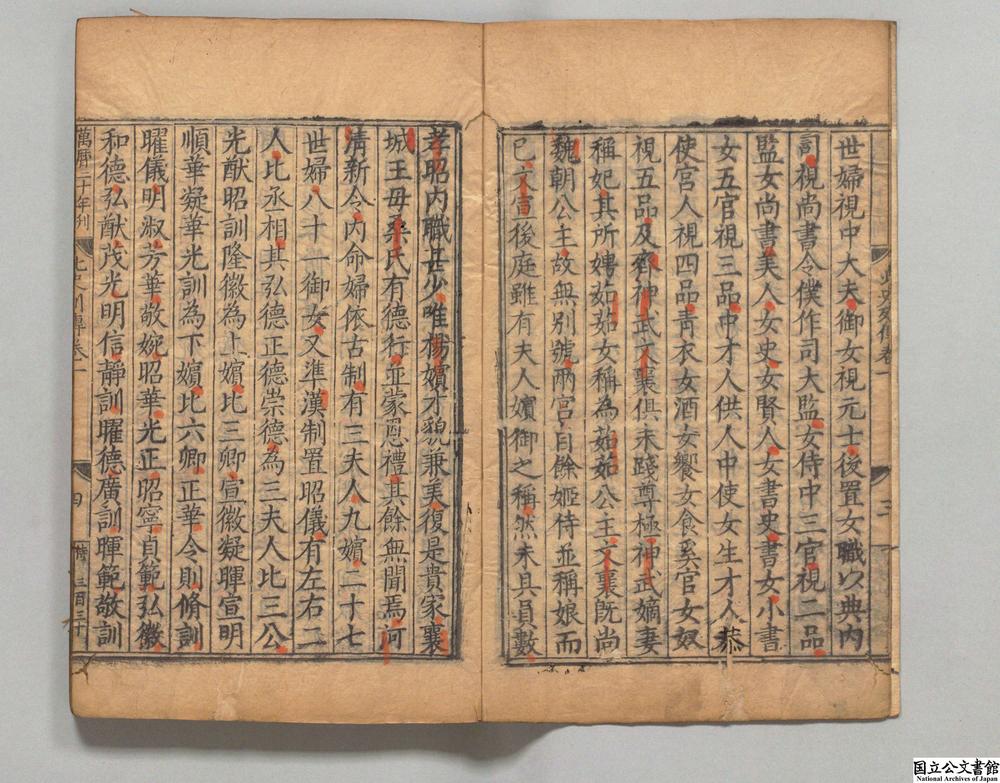 世婦視中大夫御女視元士後置女職以典内
司視尚書令僕作司大監女侍中三官視二品
監女尚書美人女史女賢人女書史書女小書
女五官視三品中才人供人中使女生才人恭
使宮人視四品青衣女酒女饗女食奚官女奴
視五品及齊神武文襄俱未踐尊極神武嫡妻
稱妃其所娉茹茹女稱為茹茹公主文襄既尚
魏朝公主故無別號兩宮自餘姬侍並稱娘而
已文宣後庭雖有夫人嬪御之稱然未具員數
孝昭内職甚少唯楊嬪才貌兼美復是貴家襄
城王母桑氏有德行並蒙恩禮其餘無聞焉河
清新令内命婦依古制有三夫人九嬪二十七
世婦八十一御女又準漢制置昭儀有左右二
人比丞相其弘德正德崇德為三夫人比三公
光猷昭訓隆徽為上嬪比三卿宣徽凝暉宣明
順華凝華光訓為下嬪比六卿正華令則脩訓
曜儀明淑芳華敬婉昭華光正昭寧貞範弘徽
和德弘猷茂光明信靜訓曜德廣訓暉範敬訓
萬曆二十年刊
卷一
四
三百三十
国立公文書館
National Archives of Japan